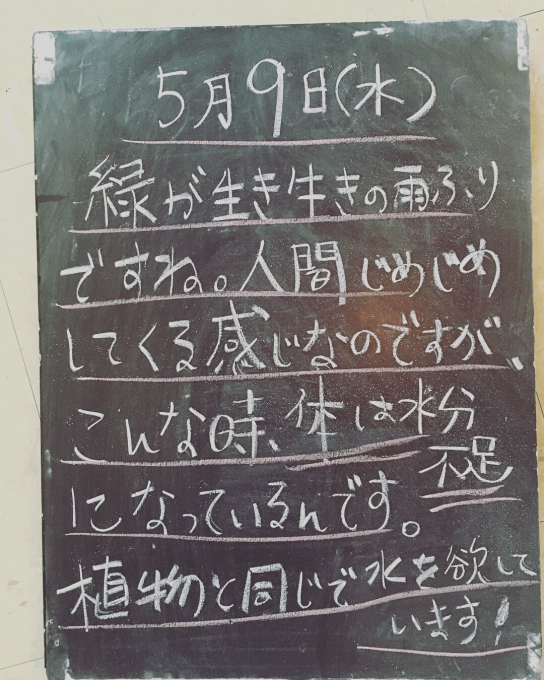 5月9日(水)
緑が生き生きの雨ふり
ですね。人間じめじめ
してくる感じなのですが、
こんな時、体は水分
不足
になっているんです。
植物と同じで水を欲して
います!